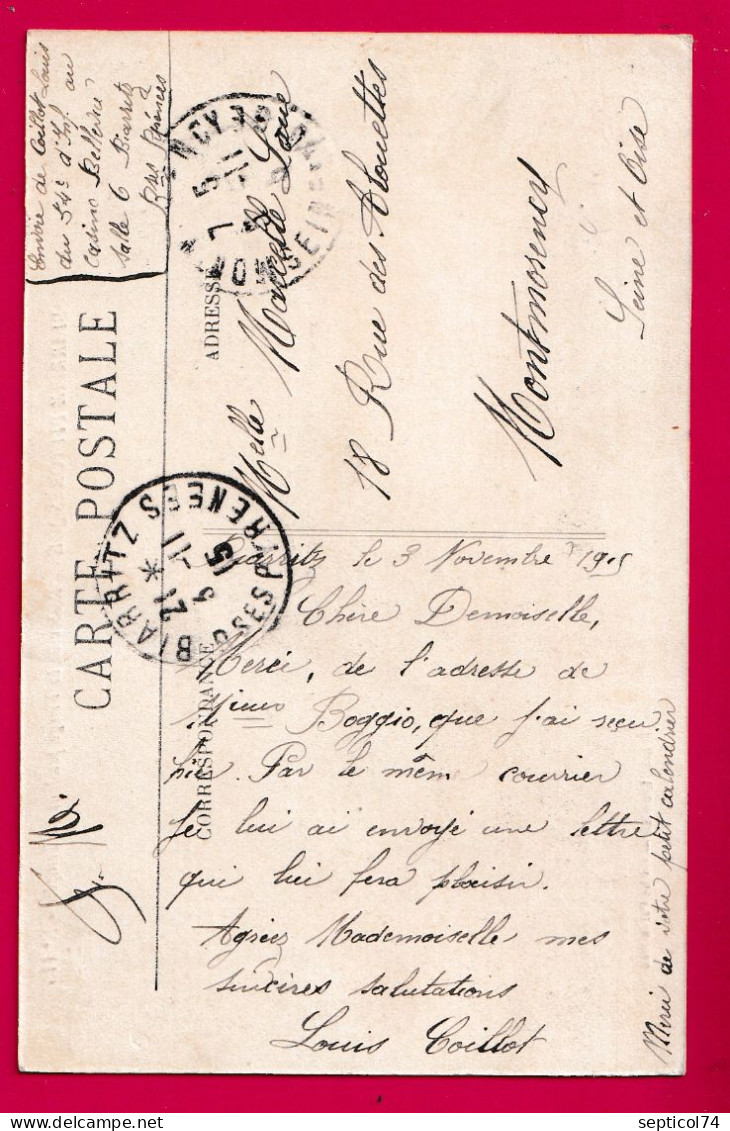 Envoie de Coillot Louis
du 54e d'Inf. au
Casino Bellevue
Salle 6 Biarritz
Bses Pyrénées
CARTE POSTALE
ADRESSE
Melle Marcelle
18 Rue des Alouettes
Montmorency
Seine et Oise
BIARRITZ
BSES PYRENEES
21 *
3 -11
15
CORRESPONDANCE
Biarritz le 3 Novembre 1915
Chère Demoiselle,
Merci, de l'adresse de
Boggio, que j'ai reçu
hier. Par le même courrier
je lui ai envoyé une lettre
qui lui fera plaisir.
Agréez Mademoiselle mes
sincères salutations
Louis Coillot
Merci de votre petit calendrier
septicol74